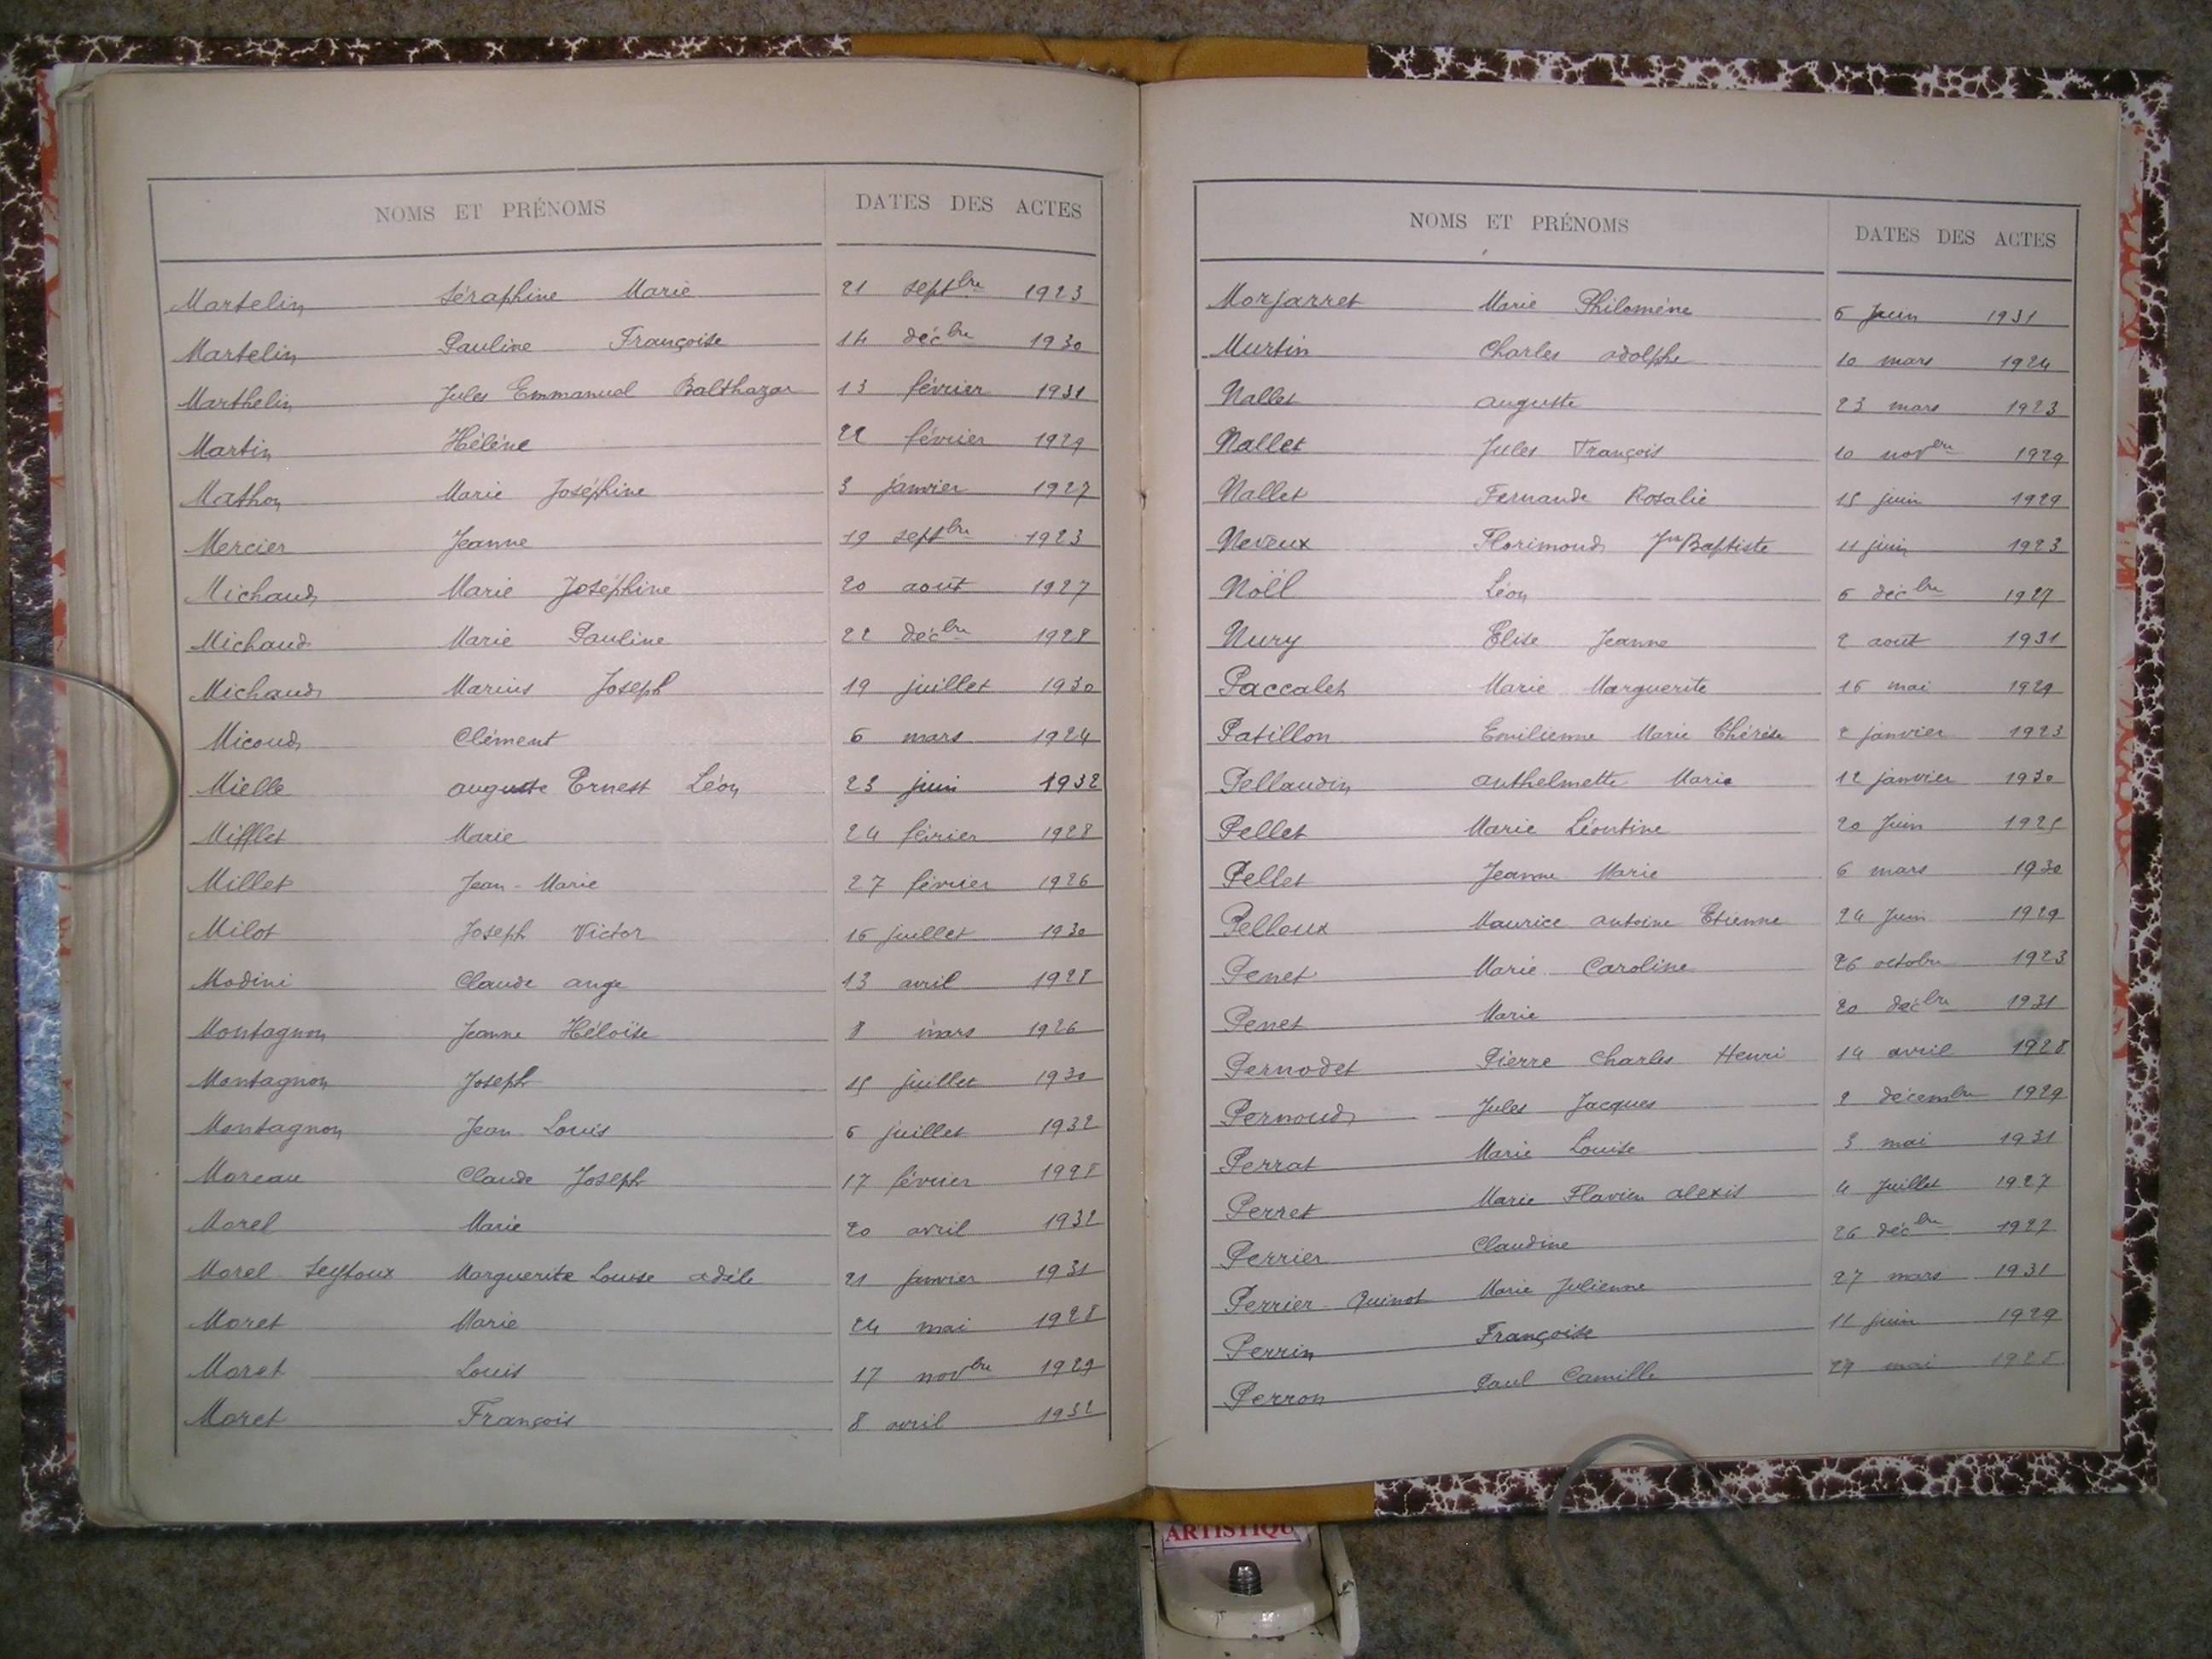 NOMS ET PRÉNOMS DATES DES ACTES
Martelin Séraphine Marie 21 septbre 1923
Martelin Pauline Françoise 14 décbre 1930
Marthelin Jules Emmanuel Balthazar 13 février 1931
Martin Hélène février 1929
Mathon Marie Joséphine 3 janvier 1927
Mercier Jeanne 19 septbre 1923
Michaud Marie Joséphine 20 août 1927
Michaud Marie Pauline 22 décbre 1928
Michaud Marius Joseph 19 juillet 1930
Micoud Clément 6 mars 1924
Mielle auguste Ernest Léon 23 juin 1932
Mifflet Marie 24 février 1928
Millet Jean-Marie 27 février 1926
Milot Joseph Victor 16 juillet 1930
Modini Claude ange 13 avril
Montagnon Jeanne Héloïse 8 mars 1926
Montagnon Joseph 15 juillet 1930
Montagnon Jean Louis 6 juillet 1932
Moreau Claude Joseph 17 février
Morel Marie 20 avril 1932
Morel Seytoux Marguerite Louise adèle 21 janvier 1931
Moret Marie 24 mai
Moret Louis 17 novbre 1929
Moret François 8 avril 1932
NOMS ET PRÉNOMS DATES DES ACTES
Morjarret Marie Philomène 6 Juin 1931
Murtin Charles adolphe 10 mars 1924
Nallet auguste 23 mars 1923
Nallet Jules François 10 novbre 1929
Nallet Fernande Rosalie 15 juin 1929
Neveux Florimond Jn Baptiste 11 juin 1923
Nöël Léon 6 décbre 1927
Nury Elise Jeanne 2 août 1931
Paccalet Marie Marguerite 16 mai 1929
Patillon Emilienne Marie Thérèse 2 janvier 1923
Pellaudin anthelmette Marie 12 janvier 1930
Pellet Marie Léontine 20 Juin 1925
Pellet Jeanne Marie 6 mars 1930
Pelloux Maurice antoine Etienne 24 Juin 1929
Penet Marie Caroline 26 octobre 1923
Penet Marie 20 décbre 1931
Pernodet Pierre Charles Henri 14 avril 1928
Pernoud Jules Jacques 2 décembre 1929
Perrat Marie Louise 3 mai 1931
Perret Marie Flavien alexis 4 Juillet 1927
Perrier Claudine 26 décbre 1927
Perrier-Quinot Marie Julienne 27 mars 1931
Perrin Françoise 11 juin 1929
Perron Paul Camille mai
ARTISTIQU